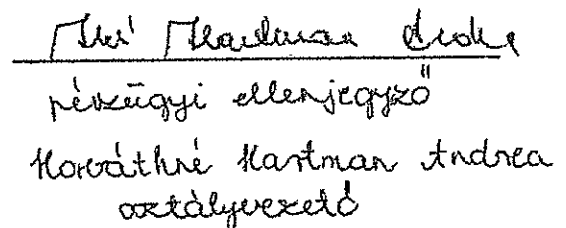 pénzügyi ellenjegyző
Horváthné Hartman Andrea
osztályvezető